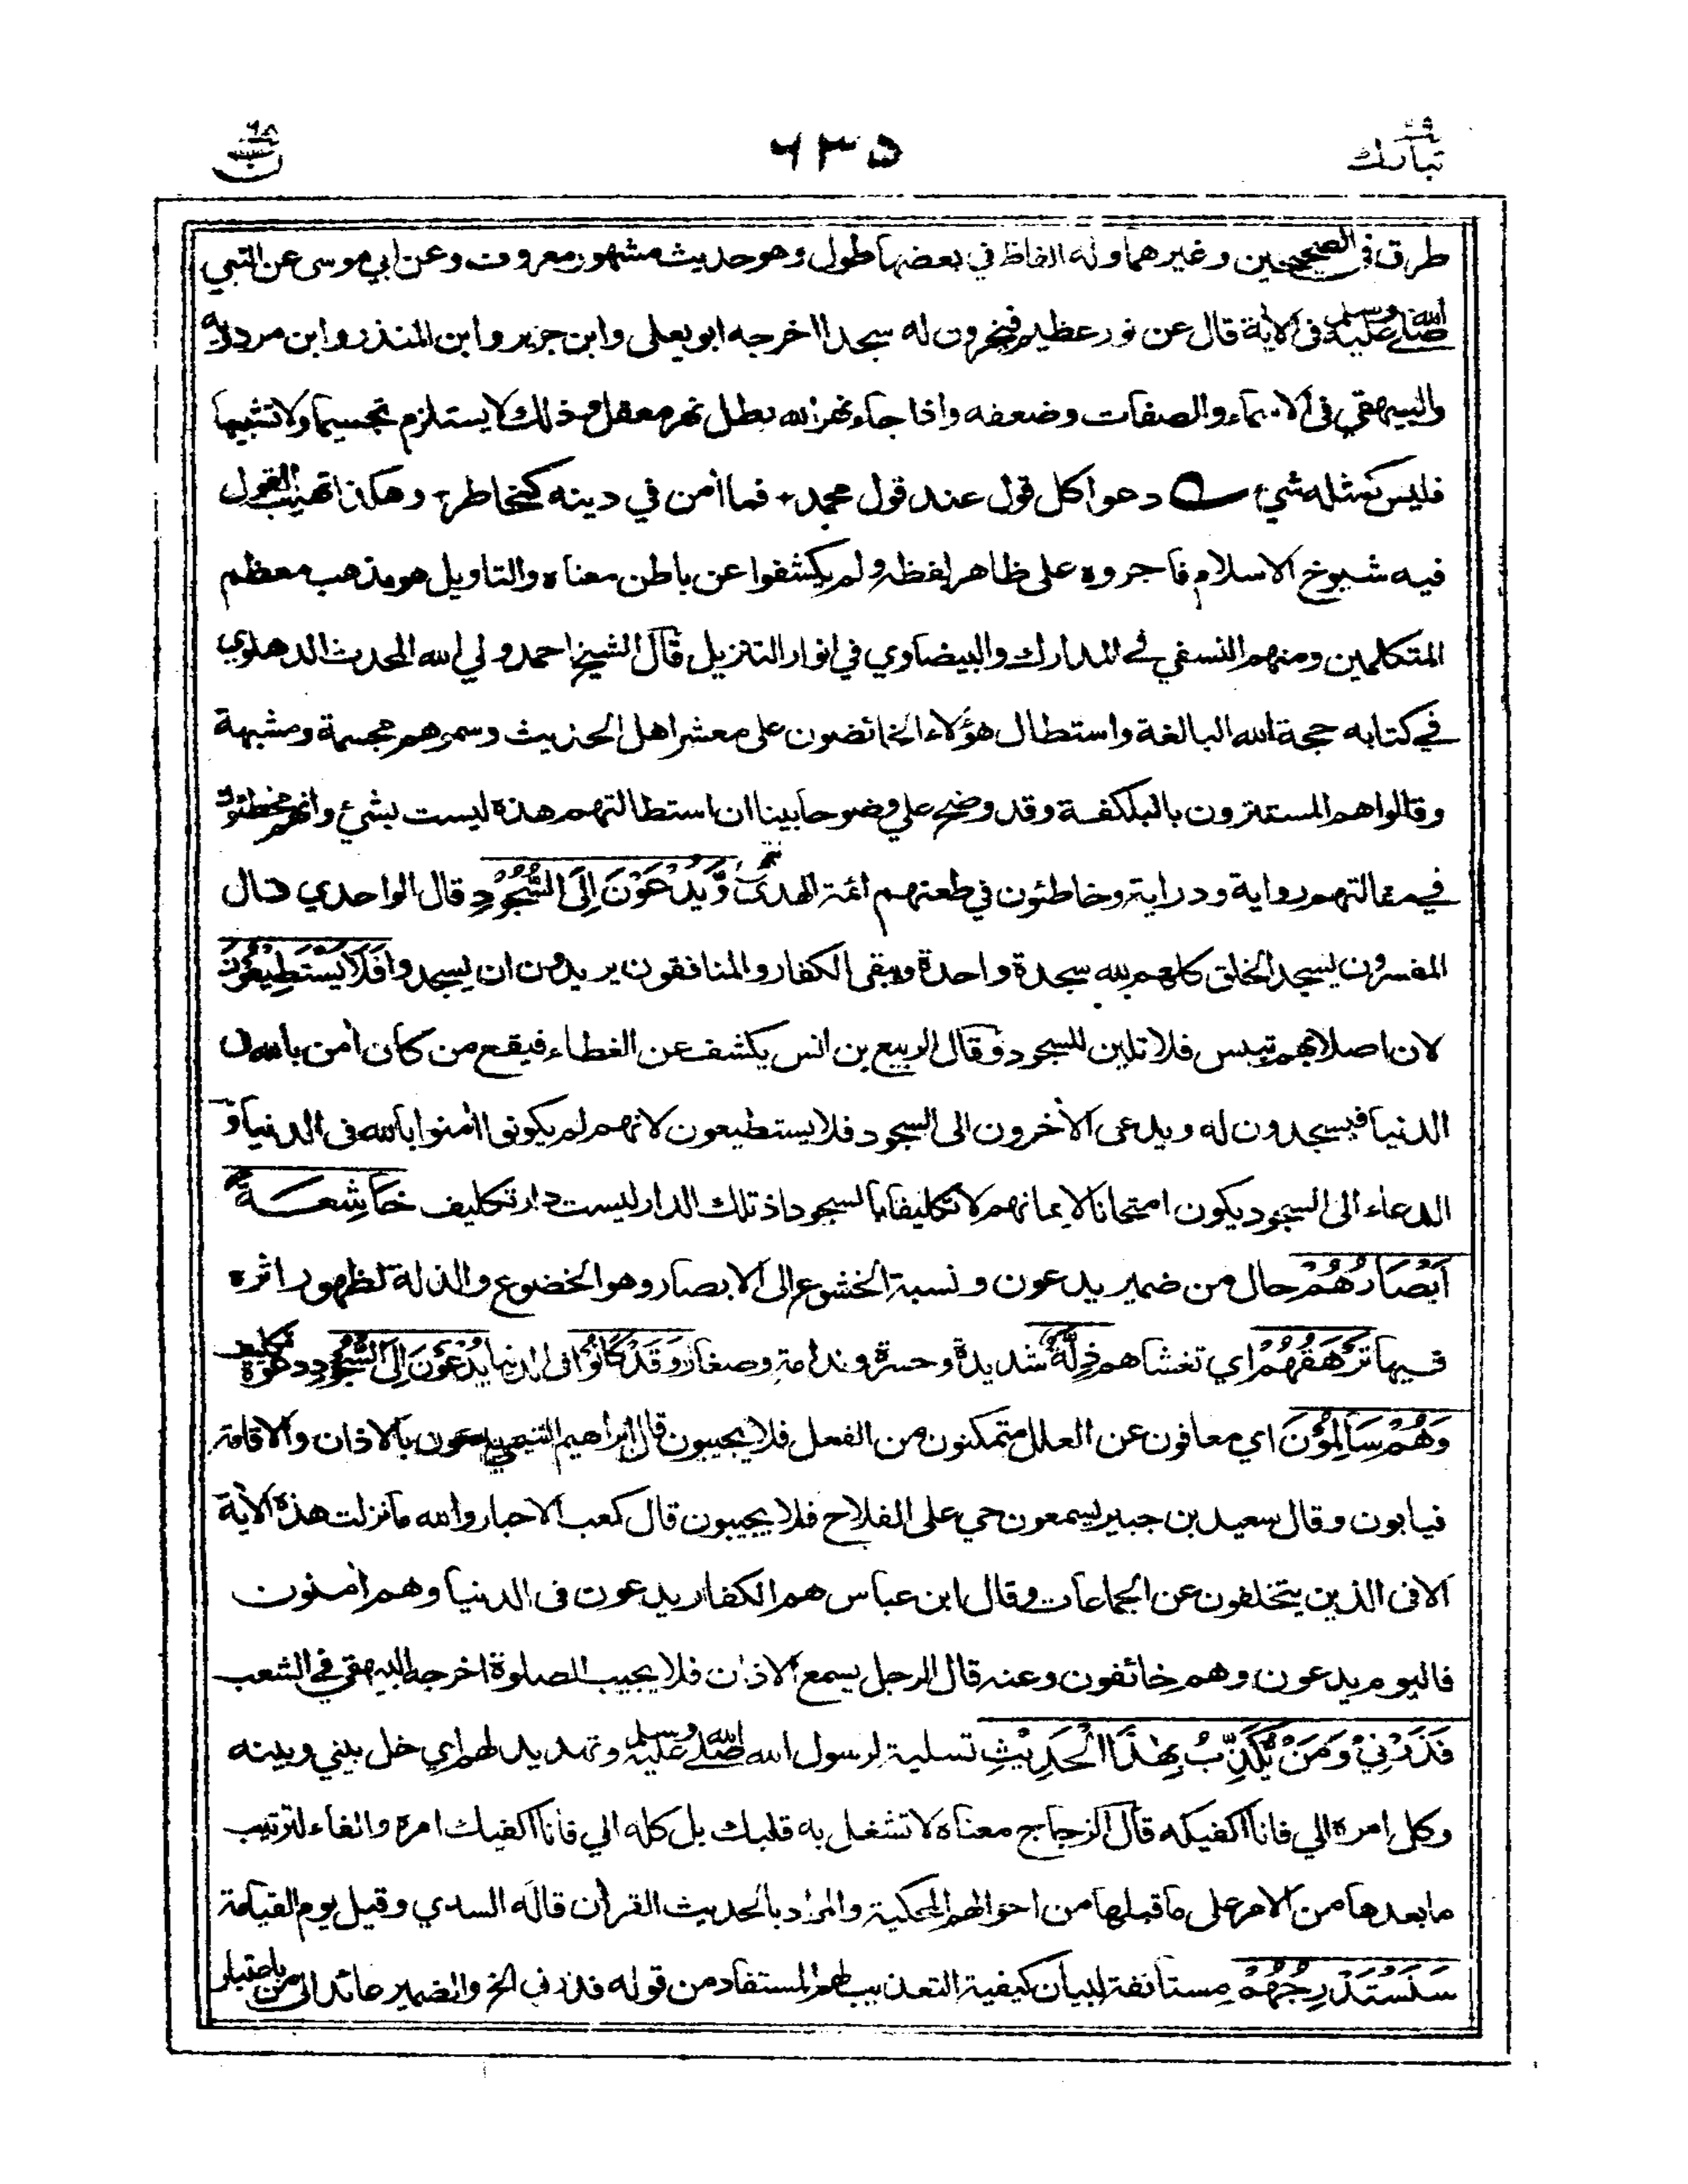 تبارك ٢٩
٦٣٥
ن ٦٨
طرق فى الصحيحين وغيرهما وله الفاظ في بعضها طول وهو حديث مشهور معروف وعن ابي موسى عن النبي
صلى الله عليه وسلم فى الأية قال عن نور عظيم فيخرون له سجدا اخرجه ابو يعلى وابن جرير وابن المنذر وابن مردويه
والبيهقي فى الاسماء والصفات وضعفه واذا جاء نهر الله بطل نهر معقل وذلك لا يستلزم تجسيما ولا تشبيها
فليس كمثله شيء دعوا كل قول عند قول محمد + فما أمن في دينه كمخاطر + وهكذا تهيب القول
فيه شيوخ الاسلام فاجروه على ظاهر لفظه ولم يكشفوا عن باطن معناه والتاويل هو مذهب معظم
المتكلمين ومنهم النسفي في المدارك والبيضاوي في انوار التنزيل قال الشيخ احمد ولي الله المحدث الدهلوي
في كتابه حجة الله البالغة واستطال هؤلاء الخائضون على معشر اهل الحديث وسموهم مجسمة ومشبهة
وقالوا هم المستترون بالبلكفة وقد وضح علي وضوحا بينا ان استطالتهم هذه ليست بشئ وانهم مخطئون
في مقالتهم رواية ودراية وخاطئون في طعنهم ائمة الهدى وَّيُدْعَوْنَ إِلَى السُّجُوْدِ قال الواحدي قال
المفسرون يسجد الخلق كلهم لله سجدة واحدة ويبقى الكفار والمنافقون يريدون ان يسجدوا فَلَا يَسْتَطِيْعُوْنَ
لان اصلابهم تيبس فلا تلين للسجود وقال الربيع بن انس يكشف عن الغطاء فيقع من كان أمن بالله في
الدنيا فيسجدون له ويدعى الأخرون الى السجود فلا يستطيعون لانهم لم يكونوا أمنوا بالله فى الدنيا و
الدعاء الى السجود يكون امتحانا لايمانهم لا تكليفا بالسجود اذ تلك الدار ليست دار تكليف خَاشِعَةً
اَبْصَارُهُمْ حال من ضمير يدعون ونسبة الخشوع الى الابصار وهو الخضوع والذلة لظهور اثره
فيها تَرْهَقُهُمْ اي تغشاهم ذِلَّةٌ شديدة وحسرة وندامة وصغار وَقَدْ كَانُوْا فى الدنيا يُدْعَوْنَ اِلَى السُّجُوْدِ دعوة تكليف
وَهُمْ سَالِمُوْنَ اي معافون عن العلل متمكنون من الفعل فلا يجيبون قال ابراهيم التيمي يدعون بالاذان والاقامة
فيابون وقال سعيد بن جبير يسمعون حي على الفلاح فلا يجيبون قال كعب الاحبار والله ما نزلت هذه الأية
الا فى الذين يتخلفون عن الجماعات وقال ابن عباس هم الكفار يدعون فى الدنيا وهم أمنون
فاليوم يدعون وهم خائفون وعنه قال الرجل يسمع الاذان فلا يجيب الصلوة اخرجه البيهقي في الشعب
فَذَرْنِيْ وَمَنْ يُّكَذِّبُ بِهٰذَا الْحَدِيْثِ تسلية لرسول الله صلى الله عليه وسلم وتهديد لهم اي خل بيني وبينه
وكل امره الي فانا اكفيكه قال الزجاج معناه لا تشغل به قلبك بل كله الي فانا اكفيك امره والفاء لترتيب
ما بعدها من الامر على ما قبلها من احوالهم المحكية والمراد بالحديث القرأن قاله السدي وقيل يوم القيامة
سَنَسْتَدْرِجُهُمْ مستانفة لبيان كيفية التعذيب لهم المستفاد من قوله فذرني الخ والضمير عائد الى من باعتبار